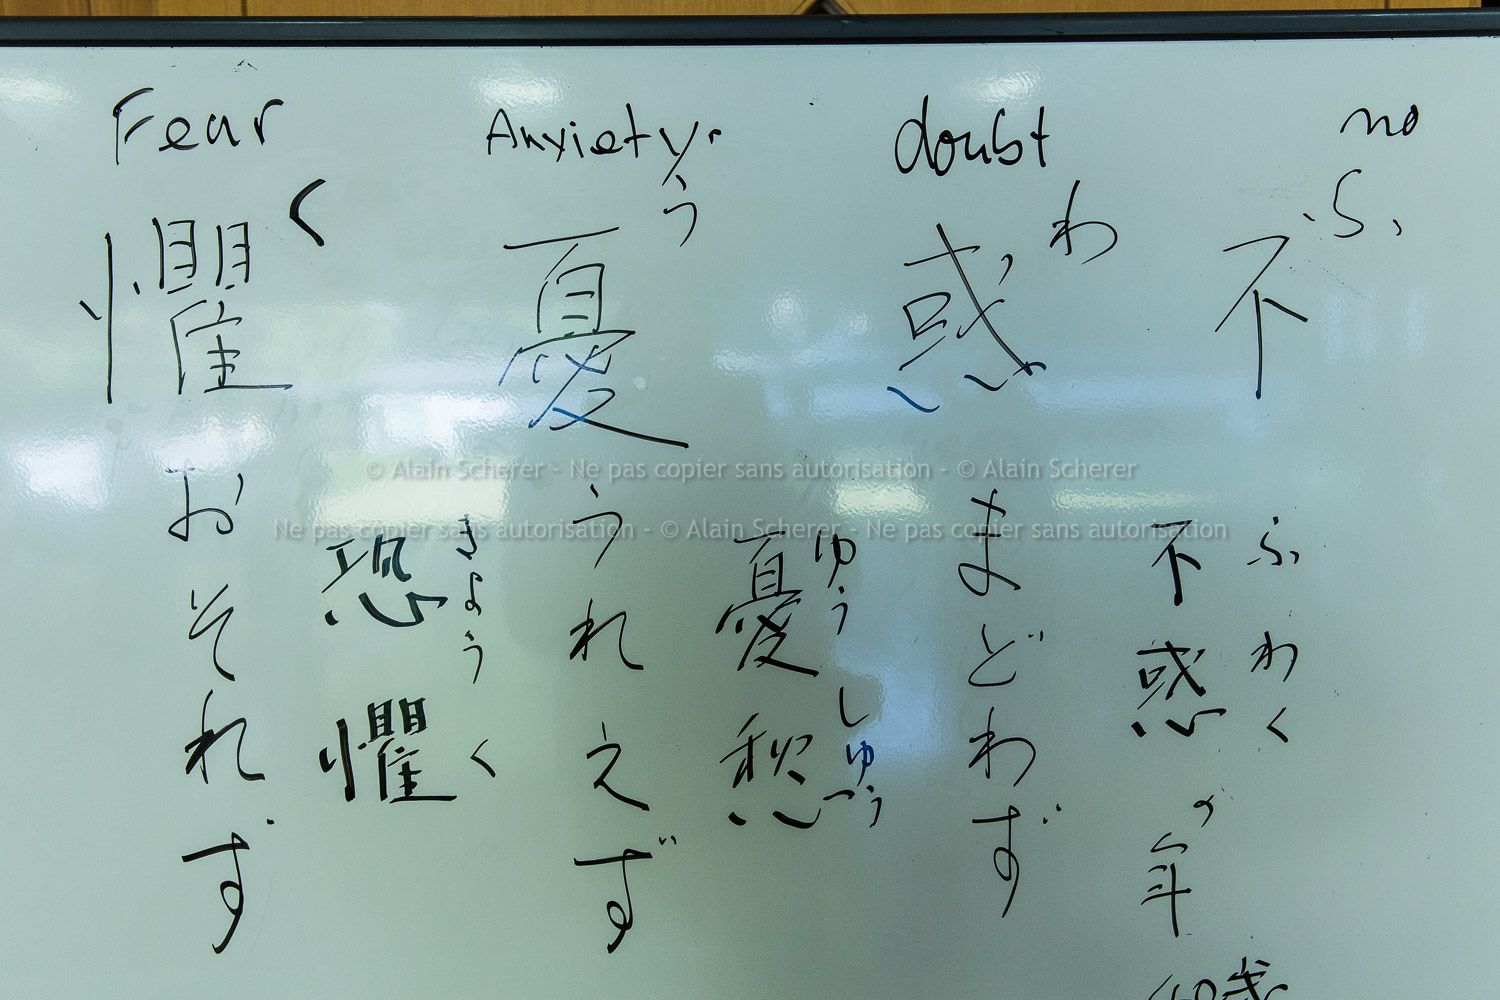 no
doubt
Anxiety
Fear
ふ
不
わ
惑
う
憂
く
懼
ふわく
不惑
の
年
40歳
まどわず
ゆうしゅう
憂愁
うれえず
きょうく
恐懼
おそれず
© Alain Scherer - Ne pas copier sans autorisation - © Alain Scherer
Ne pas copier sans autorisation - © Alain Scherer - Ne pas copier sans autorisation